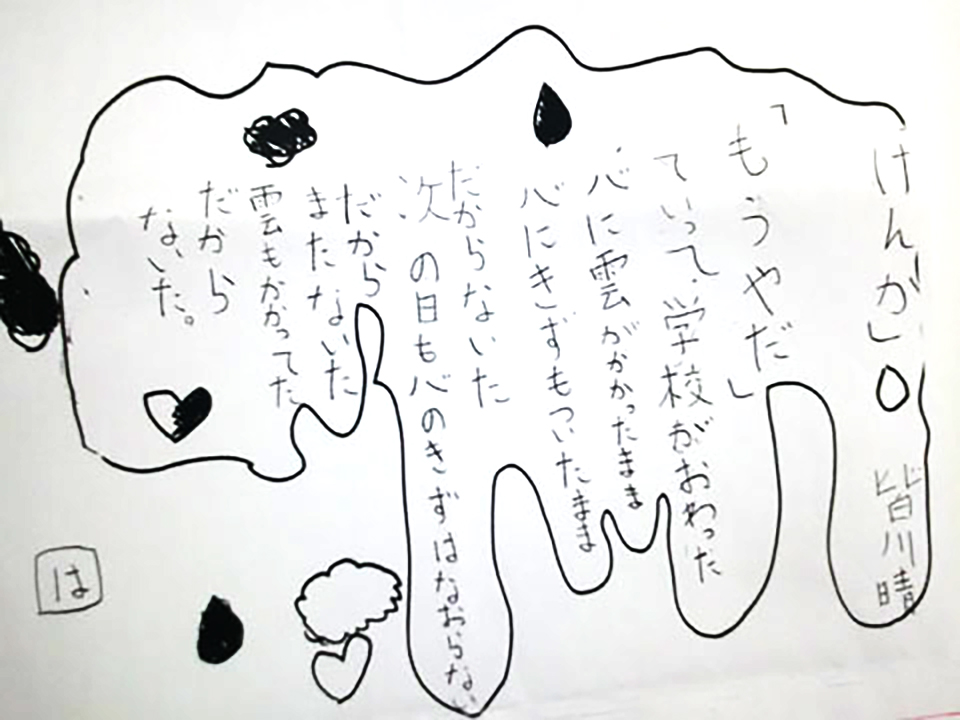 けんか○ 皆川晴
「もうやだ」
ていって学校がおわった
心に雲がかかったまま
心にきずもついたまま
だからないた
次の日も心のきずはなおらない
だから
またないた
雲もかかってた
だから
ないた。
は